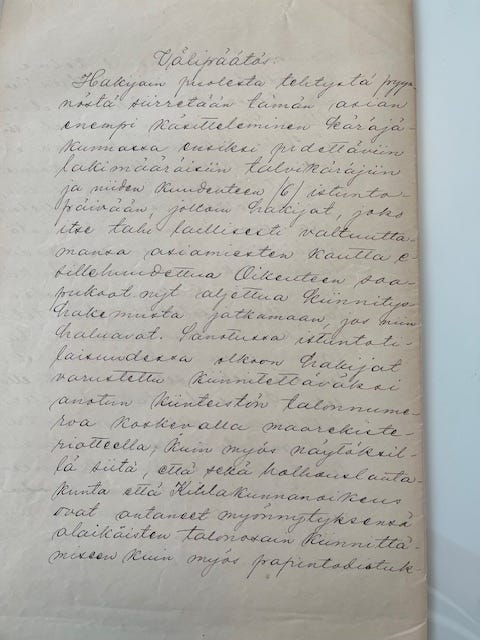 Välipäätös:
Hakijain puolesta tehtystä pyyn-
nöstä siirretään tämän asian
enempi käsitteleminen käräjä-
kunnassa ensiksi pidettäviin
lakimääräisiin talvikäräjiin
ja niiden kuudenteen /6/ istunto-
päivään, jolloin hakijat, joko
itse tahi laillisesti valtuutta-
mansa asiamiesten kautta e-
sillehuudettua Oikeuteen saa-
pukoot nyt aljettua kiinnitys-
hakemusta jatkamaan, jos niin
haluavat. Sanotussa istuntoti-
laisuudessa olkoon hakijat
varustettu kiinnitettäväksi
anotun kiinteistön talonnume-
roa koskevalla maarekiste-
riotteella, kuin myös näytöksil-
lä siitä, että sekä holhouslauta-
kunta että Kihlakunnanoikeus
ovat antaneet myönnytyksensä
alaikäisten talonosain kiinnittä-
miseen kuin myös papintodistuk-